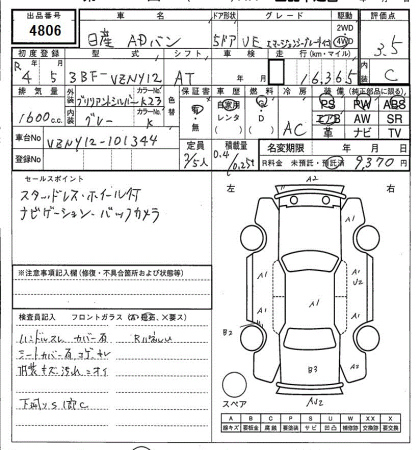 出品番号 車名 ドア形状 グレード 駆動 評価点
4806 日産 ADバン 5ドア VE 2WD 4WD 3.5
初度登録 型式 シフト 車検 走行(km・マイル) 内装
R 4年 5月 3BF-VZNY12 AT 年 月 16,365 C
排気量 外装 ブリリアントシルバー K23 色替 保証書 車歴 燃料 冷房 装備(純正部品に限る)
1600cc 内装 グレー K 有・無 自家用 レンタ G・D AC PS PW ABS
エアB AW SR
革 ナビ TV
車台No VZNY12-101344 定員 2/5人 積載量 0.4/0.25t 名変期限 年 月 日
登録No R料金 未預託・預託 9,370円
セールスポイント
スタッドレス・ホイール付
ナビゲーション・バックカメラ
左 右
A2
A1 A1 A1
A1 U2
A1
B2
A1
B3
スペア
※注意事項記入欄(修復・不具合箇所および状態等)
検査員記入欄 フロントガラス
ハンドルスレ カバー有
シートカバー有 コゲ キレ
内装キズ 汚れ ニオイ
下廻り S 1部C
A B C P S U W X XX
線キズ 要板金 腐蝕 要塗装 サビ 凹凸 補修跡 要交換 交換跡